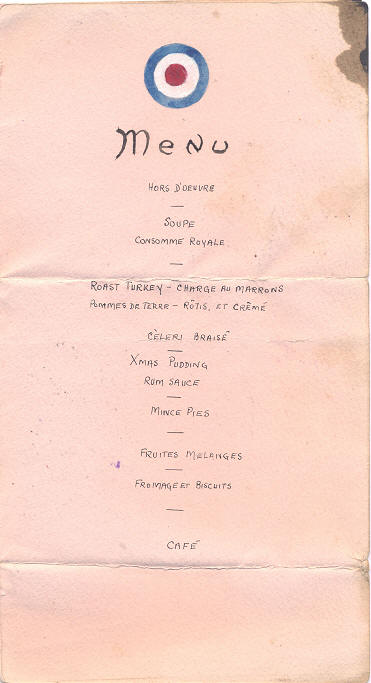 Menu
HORS D'OEUVRE
SOUPE
CONSOMME ROYALE
ROAST TURKEY - CHARGE AU MARRONS
POMMES DE TERRE - RÔTIS, ET CRÊMÉ
CÈLERI BRAISÉ
XMAS PUDDING
RUM SAUCE
MINCE PIES
FRUITES MELANGES
FROMAGE ET BISCUITS
CAFÉ